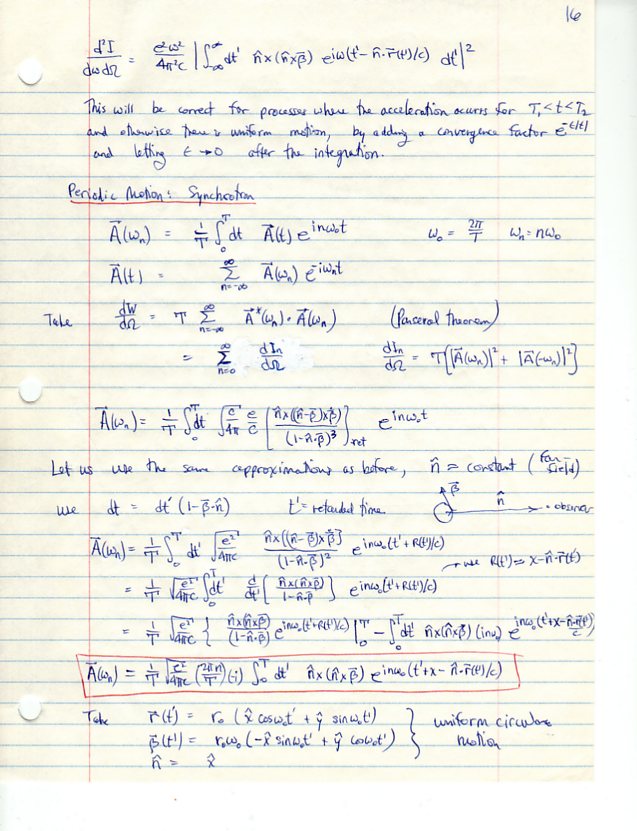 16
d²I/dωdΩ = e²ω²/4π²c | ∫_{-∞}^{∞} dt' n̂×(n̂×β̄) e^{iω(t' - n̂·r̄(t')/c)} dt' |²
This will be correct for processes where the acceleration ocurrs for T₁<t<T₂
and otherwise there is uniform motion, by adding a convergence factor e^{-ε|t|}
and letting ε→0 after the integration.
Periodic Motion: Synchrotron
A⃗(ωₙ) = 1/T ∫₀ᵀ dt A⃗(t) e^{inω₀t} ω₀ = 2π/T ωₙ = nω₀
A⃗(t) = Σ_{n=-∞}^{∞} A⃗(ωₙ) e^{-iωₙt}
Take dW/dΩ = T Σ_{n=-∞}^{∞} A⃗*(ωₙ)·A⃗(ωₙ) (Parseval theorem)
= Σ_{n=0}^{∞} dIₙ/dΩ dIₙ/dΩ = T[|A⃗(ωₙ)|² + |A⃗(-ωₙ)|²]
A⃗(ωₙ) = 1/T ∫₀ᵀ dt √(c/4π) e/c [ n̂×((n̂-β̄)×β̄̇) / (1-n̂·β̄)³ ]_ret e^{inω₀t}
Let us use the same approximations as before, n̂ ≈ constant (far field)
use dt = dt' (1-β̄·n̂) t' = retarded time β̄ n̂ observer
A⃗(ωₙ) = 1/T ∫₀ᵀ dt' √(e²/4πc) n̂×[(n̂-β̄)×β̄̇] / (1-n̂·β̄)² e^{inω₀(t'+R(t')/c)}
use R(t') ≈ x-n̂·r̄(t')
= 1/T √(e²/4πc) ∫₀ᵀ dt' d/dt' { n̂×(n̂×β̄) / (1-n̂·β̄) } e^{inω₀(t'+R(t')/c)}
= 1/T √(e²/4πc) { n̂×(n̂×β̄)/(1-n̂·β̄) e^{inω₀(t'+R(t')/c)} |₀ᵀ - ∫₀ᵀ dt' n̂×(n̂×β̄) (inω₀) e^{inω₀(t'+x-n̂·r̄(t')/c)}
A⃗(ωₙ) = 1/T √(e²/4πc) (2πn/T)(-i) ∫₀ᵀ dt' n̂×(n̂×β̄) e^{inω₀(t'+x-n̂·r̄(t')/c)}
Take r⃗(t') = r₀ (x̂ cosω₀t' + ŷ sinω₀t') } uniform circular
β⃗(t') = r₀ω₀ (-x̂ sinω₀t' + ŷ cosω₀t') motion
n̂ = x̂